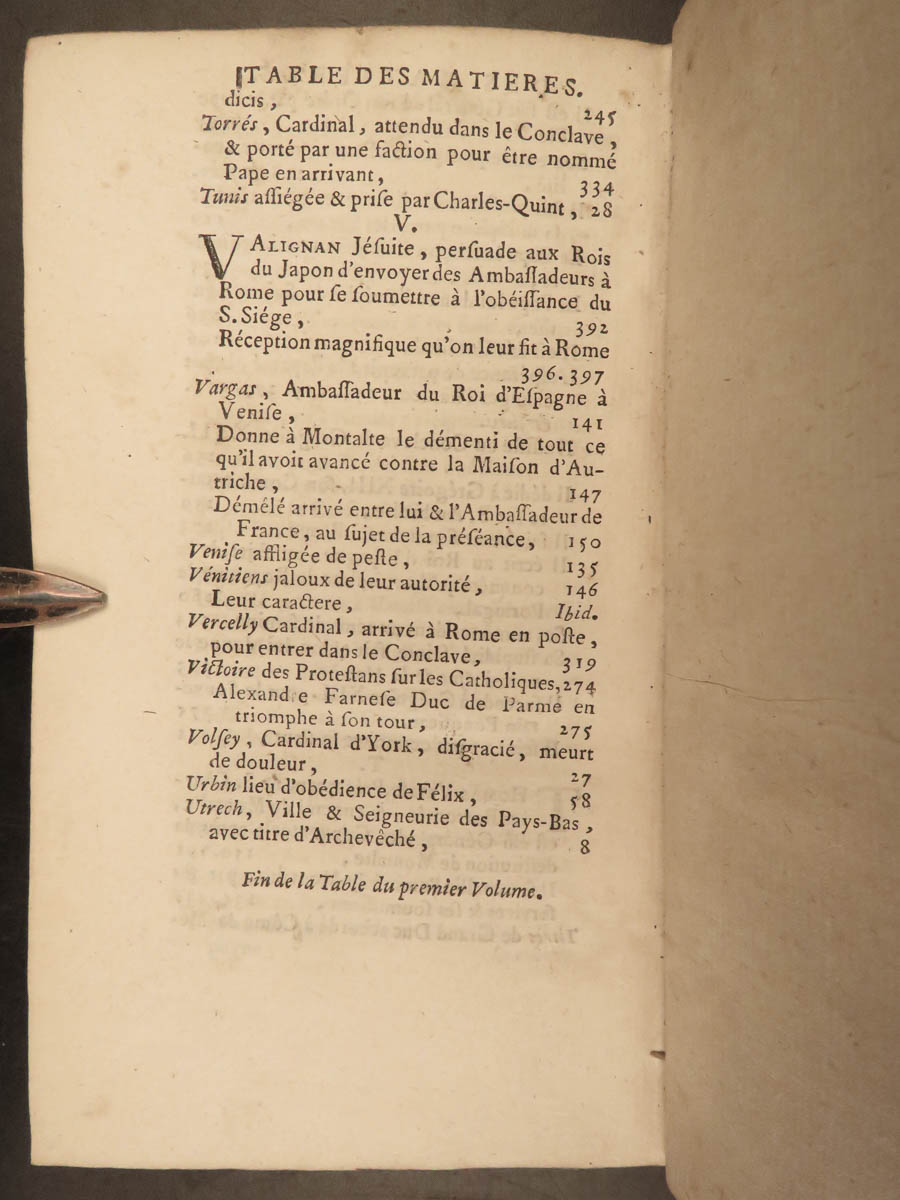 TABLE DES MATIERES.
dicis, 245
Torrés, Cardinal, attendu dans le Conclave,
& porté par une faction pour être nommé
Pape en arrivant, 334
Tunis aſſiégée & priſe par Charles-Quint, 28
V.
VALIGNAN Jéſuite, perſuade aux Rois
du Japon d'envoyer des Ambaſſadeurs à
Rome pour ſe ſoumettre à l'obéiſſance du
S. Siége, 392
Réception magnifique qu'on leur fit à Rome
396. 397
Vargas, Ambaſſadeur du Roi d'Eſpagne à
Veniſe, 141
Donne à Montalte le démenti de tout ce
qu'il avoit avancé contre la Maiſon d'Au-
triche, 147
Démélé arrivé entre lui & l'Ambaſſadeur de
France, au ſujet de la préſéance, 150
Veniſe affligée de peſte, 135
Vénitiens jaloux de leur autorité, 146
Leur caractere, Ibid.
Vercelly Cardinal, arrivé à Rome en poſte,
pour entrer dans le Conclave, 319
Victoire des Proteſtans ſur les Catholiques, 274
Alexand e Farneſe Duc de Parme en
triomphe à ſon tour, 275
Volſey, Cardinal d'York, diſgracié, meurt
de douleur, 27
Urbin lieu d'obédience de Félix, 58
Utrech, Ville & Seigneurie des Pays-Bas,
avec titre d'Archevêché, 8
Fin de la Table du premier Volume.